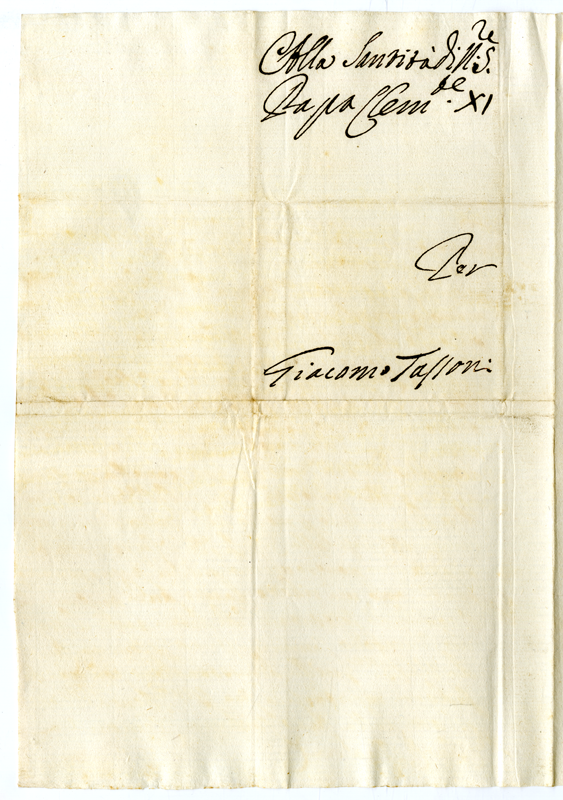 Alla Santità di N: S.re
Papa Clem.te XI
Per
Giacomo Tassoni